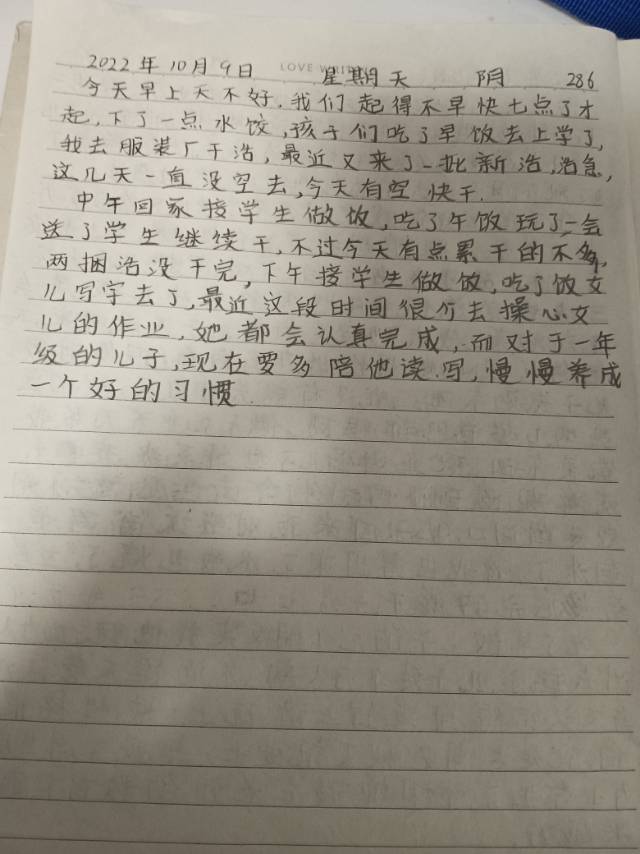 LOVE
2022年10月9日 星期天 阴 286
今天早上天不好,我们起得不早快七点了才
起,下了一点水饺,孩子们吃了早饭去上学了,
我去服装厂干浩,最近又来了一批新浩,浩急,
这几天一直没空去,今天有空快干.
中午回家接学生做饭,吃了午饭玩了一会
送了学生继续干,不过今天有点累干的不多,
两捆浩没干完,下午接学生做饭,吃了饭女
儿写字去了,最近这段时间很少去操心女
儿的作业,她都会认真完成,而对于一年
级的儿子,现在要多陪他读.写,慢慢养成
一个好的习惯